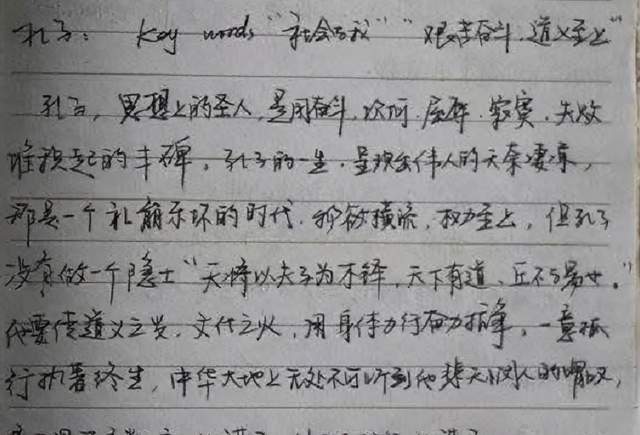 孔子: Key words "社会与我" "艰苦奋斗.道义至上"
孔子,思想上的圣人,是用奋斗,坎坷.屈辱.寂寞.失败
堆积起的丰碑。孔子的一生.呈现出伟人的天奈凄凉,
那是一个礼崩乐坏的时代.物欲横流.权力至上,但孔子
没有做一个隐士"天将以夫子为木铎,天下有道、丘不与易也。"
他要凭道义之炬.文化之火,用身体力行奋力抗争,一意孤
行执著终生,中华大地上无处不可听到他悲天悯人的喟叹,